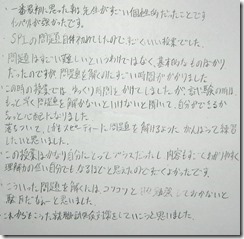 ・一番最初に思った事は先生がすごい個性的だったことです
インパクトが強かったです。
・SPIの問題自体初めてしたので、すごくいい授業でした。
・問題はすごい難しいというわけではなく、基本的なものばかり
だったのですが 問題を解くのにすごい時間がかかりました
この時の授業では、ゆっくり時間をかけてしましたが、試験の時は
もっと早く問題を解かないといけないと聞いて、自分ができるか
ちょっと心配になりました
落ちついて、しかもスピーディーに問題を解けるよう がんばって練習
したいと思いました。
・この授業はかなり自分にとってプラスだったし 内容もすごくわかりやすく
理解力の低い自分でも なるほどと思えたのですごくよかったです。
・こういった問題を解くには、コツコツと 勉強しておかないと
駄目だなぁーと思いました。